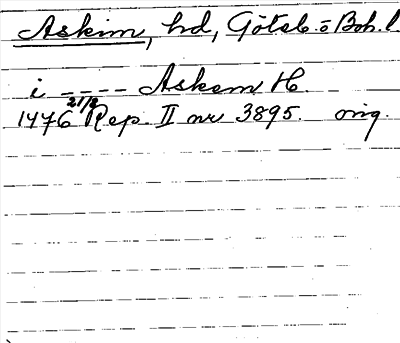 Askim, hd, Göteb. o Boh. l.
i ---- Askem H.
1476 21/2 Rep. II nr 3895. orig.